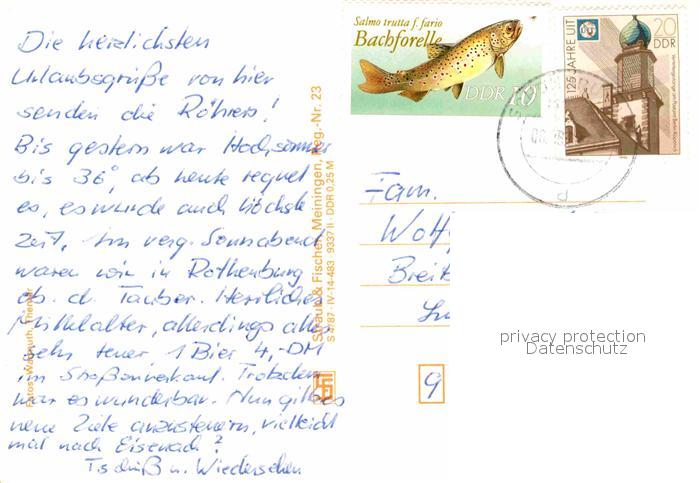 Die herzlichsten
Urlaubsgrüße von hier
senden die Röhrers!
Bis gestern war Hochsommer
bis 36°, ab heute regnet
es, es wurde auch höchste
Zeit. Im verg. Sonnabend
waren wir in Rothenburg
ob. d. Tauber. Herrliches
Mittelalter, allerdings alles
sehr teuer, 1 Bier 4,-DM
im Straßenverkauf. Trotzdem
war es wunderbar. Nun gilt es
neue Ziele anzusteuern, vielleicht
mal nach Eisenach?
Tschüß u. Wiedersehen
Fotos: Wallmuth, Themar
Straub & Fischer, Meiningen, Reg.-Nr. 23
S 4/87 · IV-14-483 · 9337 II · DDR 0,25 M
Salmo trutta f. fario
Bachforelle
DDR 10
125 JAHRE UIT
20
DDR
d
Fam.
Wolf
Breit
privacy protection
Datenschutz
9